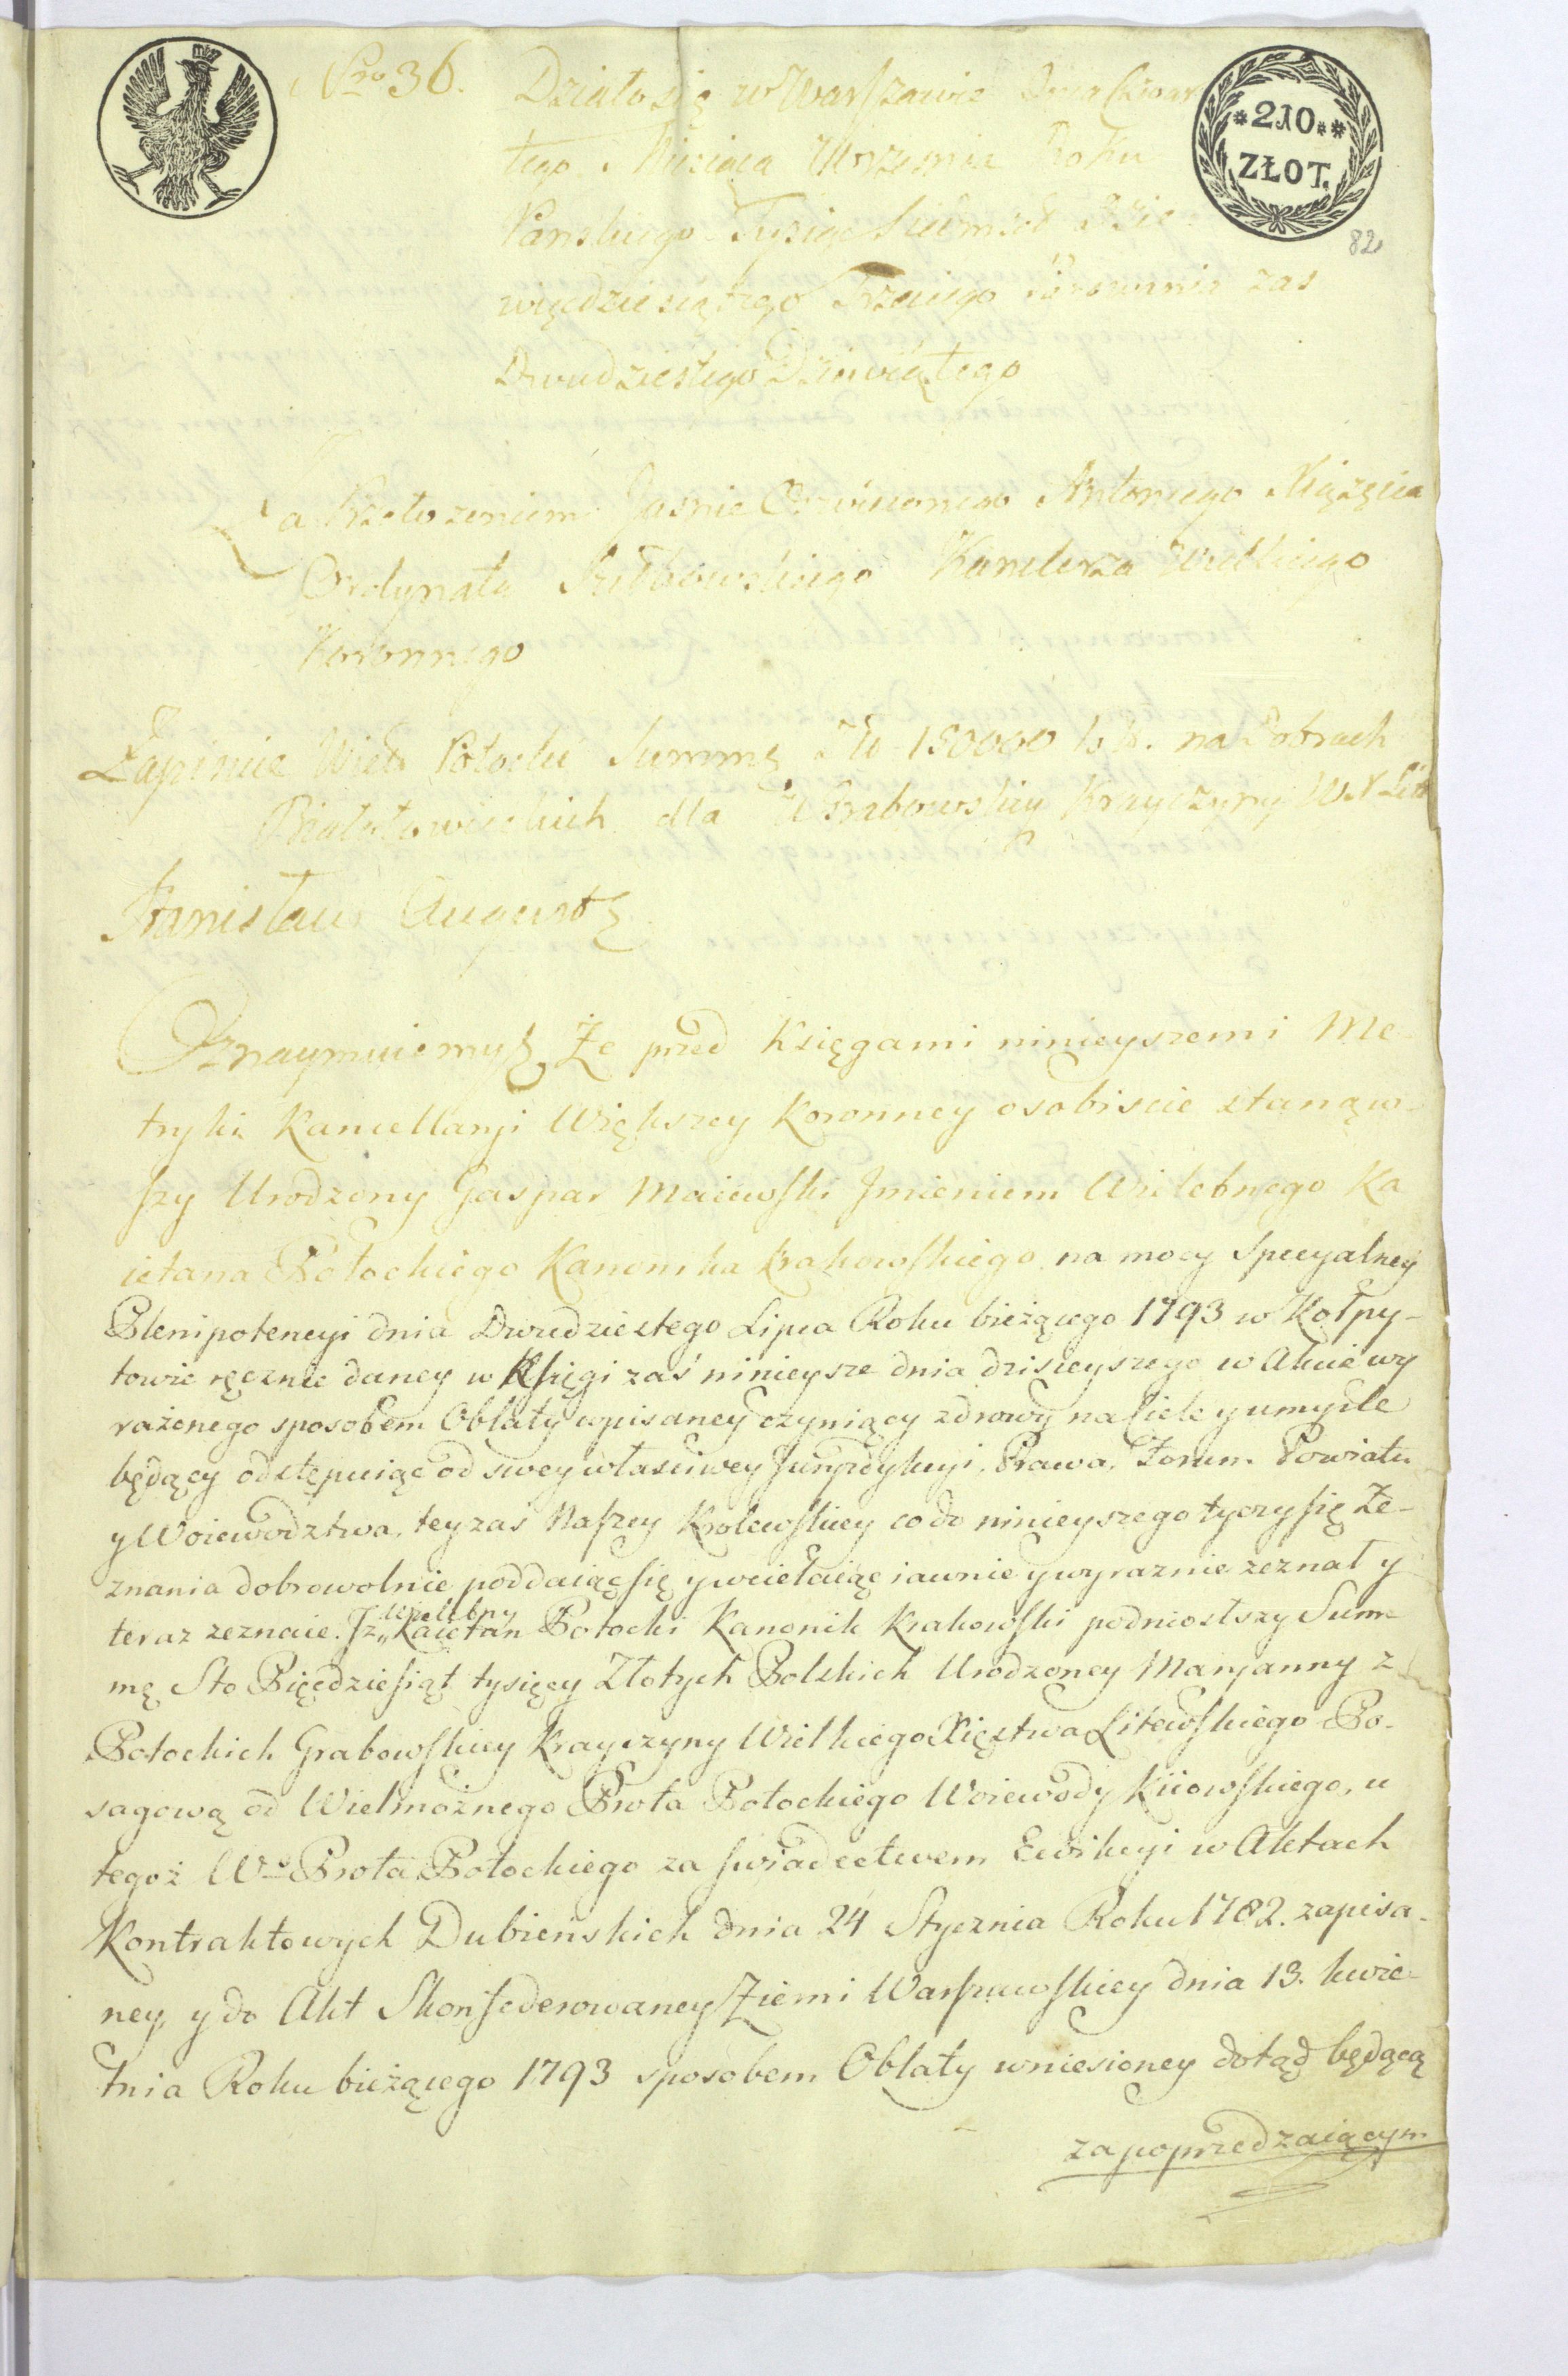 Nro 36.
Działo się w Warszawie Dnia Czwar
tego Miesiąca Września Roku
Pańskiego Tysiąc Siedmset Dzie-
więdziesiątego Trzeciego Panowania zas
Dwudziestego Dziewiątego
*210.*
ZŁOT.
82
Za Przełożeniem Jasnie Oswieconego Antoniego Xiążęcia
Ordynata Sułkowskiego Kanclerza Wielkiego
Koronnego
Zapisuie Wiel. Potocki Summę Zł 150000 na Dobrach
dla W Grabowskiey Krayczyny W. X Lit
Stanisław August
Oznaymuiemy Że przed Księgami ninieyszemi Me
tryki Kancellaryi Większey Koronney osobiscie stanąw-
szy Urodzony Gaspar Maiewski Jmieniem Wielebnego Ka
ietana Potockiego Kanonika Krakowskiego na mocy Specyalney
Plenipotencyi dnia Dwudziestego Lipca Roku bieżącego 1793 w Kołpy-
towie ręcznie daney w Księgi zaś ninieysze dnia dzisieyszego w Akcie wy
rażonego sposobem Oblaty wpisaney czyniący zdrowy na Ciele y umysle
będący odstępuiąc od swey własciwey Juryzdykcyi, Prawa, Forum Powiatu
y Woiewodztwa, tey zas Naszey Krolewskiey co do ninieyszego tyczy się Ze-
znania dobrowolnie poddaiąc się y wcielaiąc iawnie y wyraznie zeznał y
teraz zeznaie. Jz „ Wielebny Kaietan Potocki Kanonik Krakowski podniosłszy Sum-
mę Sto Pięćdziesiąt tysięcy Złotych Polskich Urodzoney Maryanny z
Potockich Grabowskiey Krayczyny Wielkiego Xięstwa Litewskiego Po-
sagową od Wielmożnego Prota Potockiego Woiewody Kiiowskiego, u
tegoż Wo Prota Potockiego za swiadectwem Ewikcyi w Aktach
Kontraktowych Dubieńskich dnia 24 Stycznia Roku 1782. zapisa-
ney, y do Akt Skonfederowaney Ziemi Warszawskiey dnia 13. kwie-
tnia Roku bieżącego 1793 sposobem Oblaty wniesioney dotąd będącą
za poprzedzaiącym